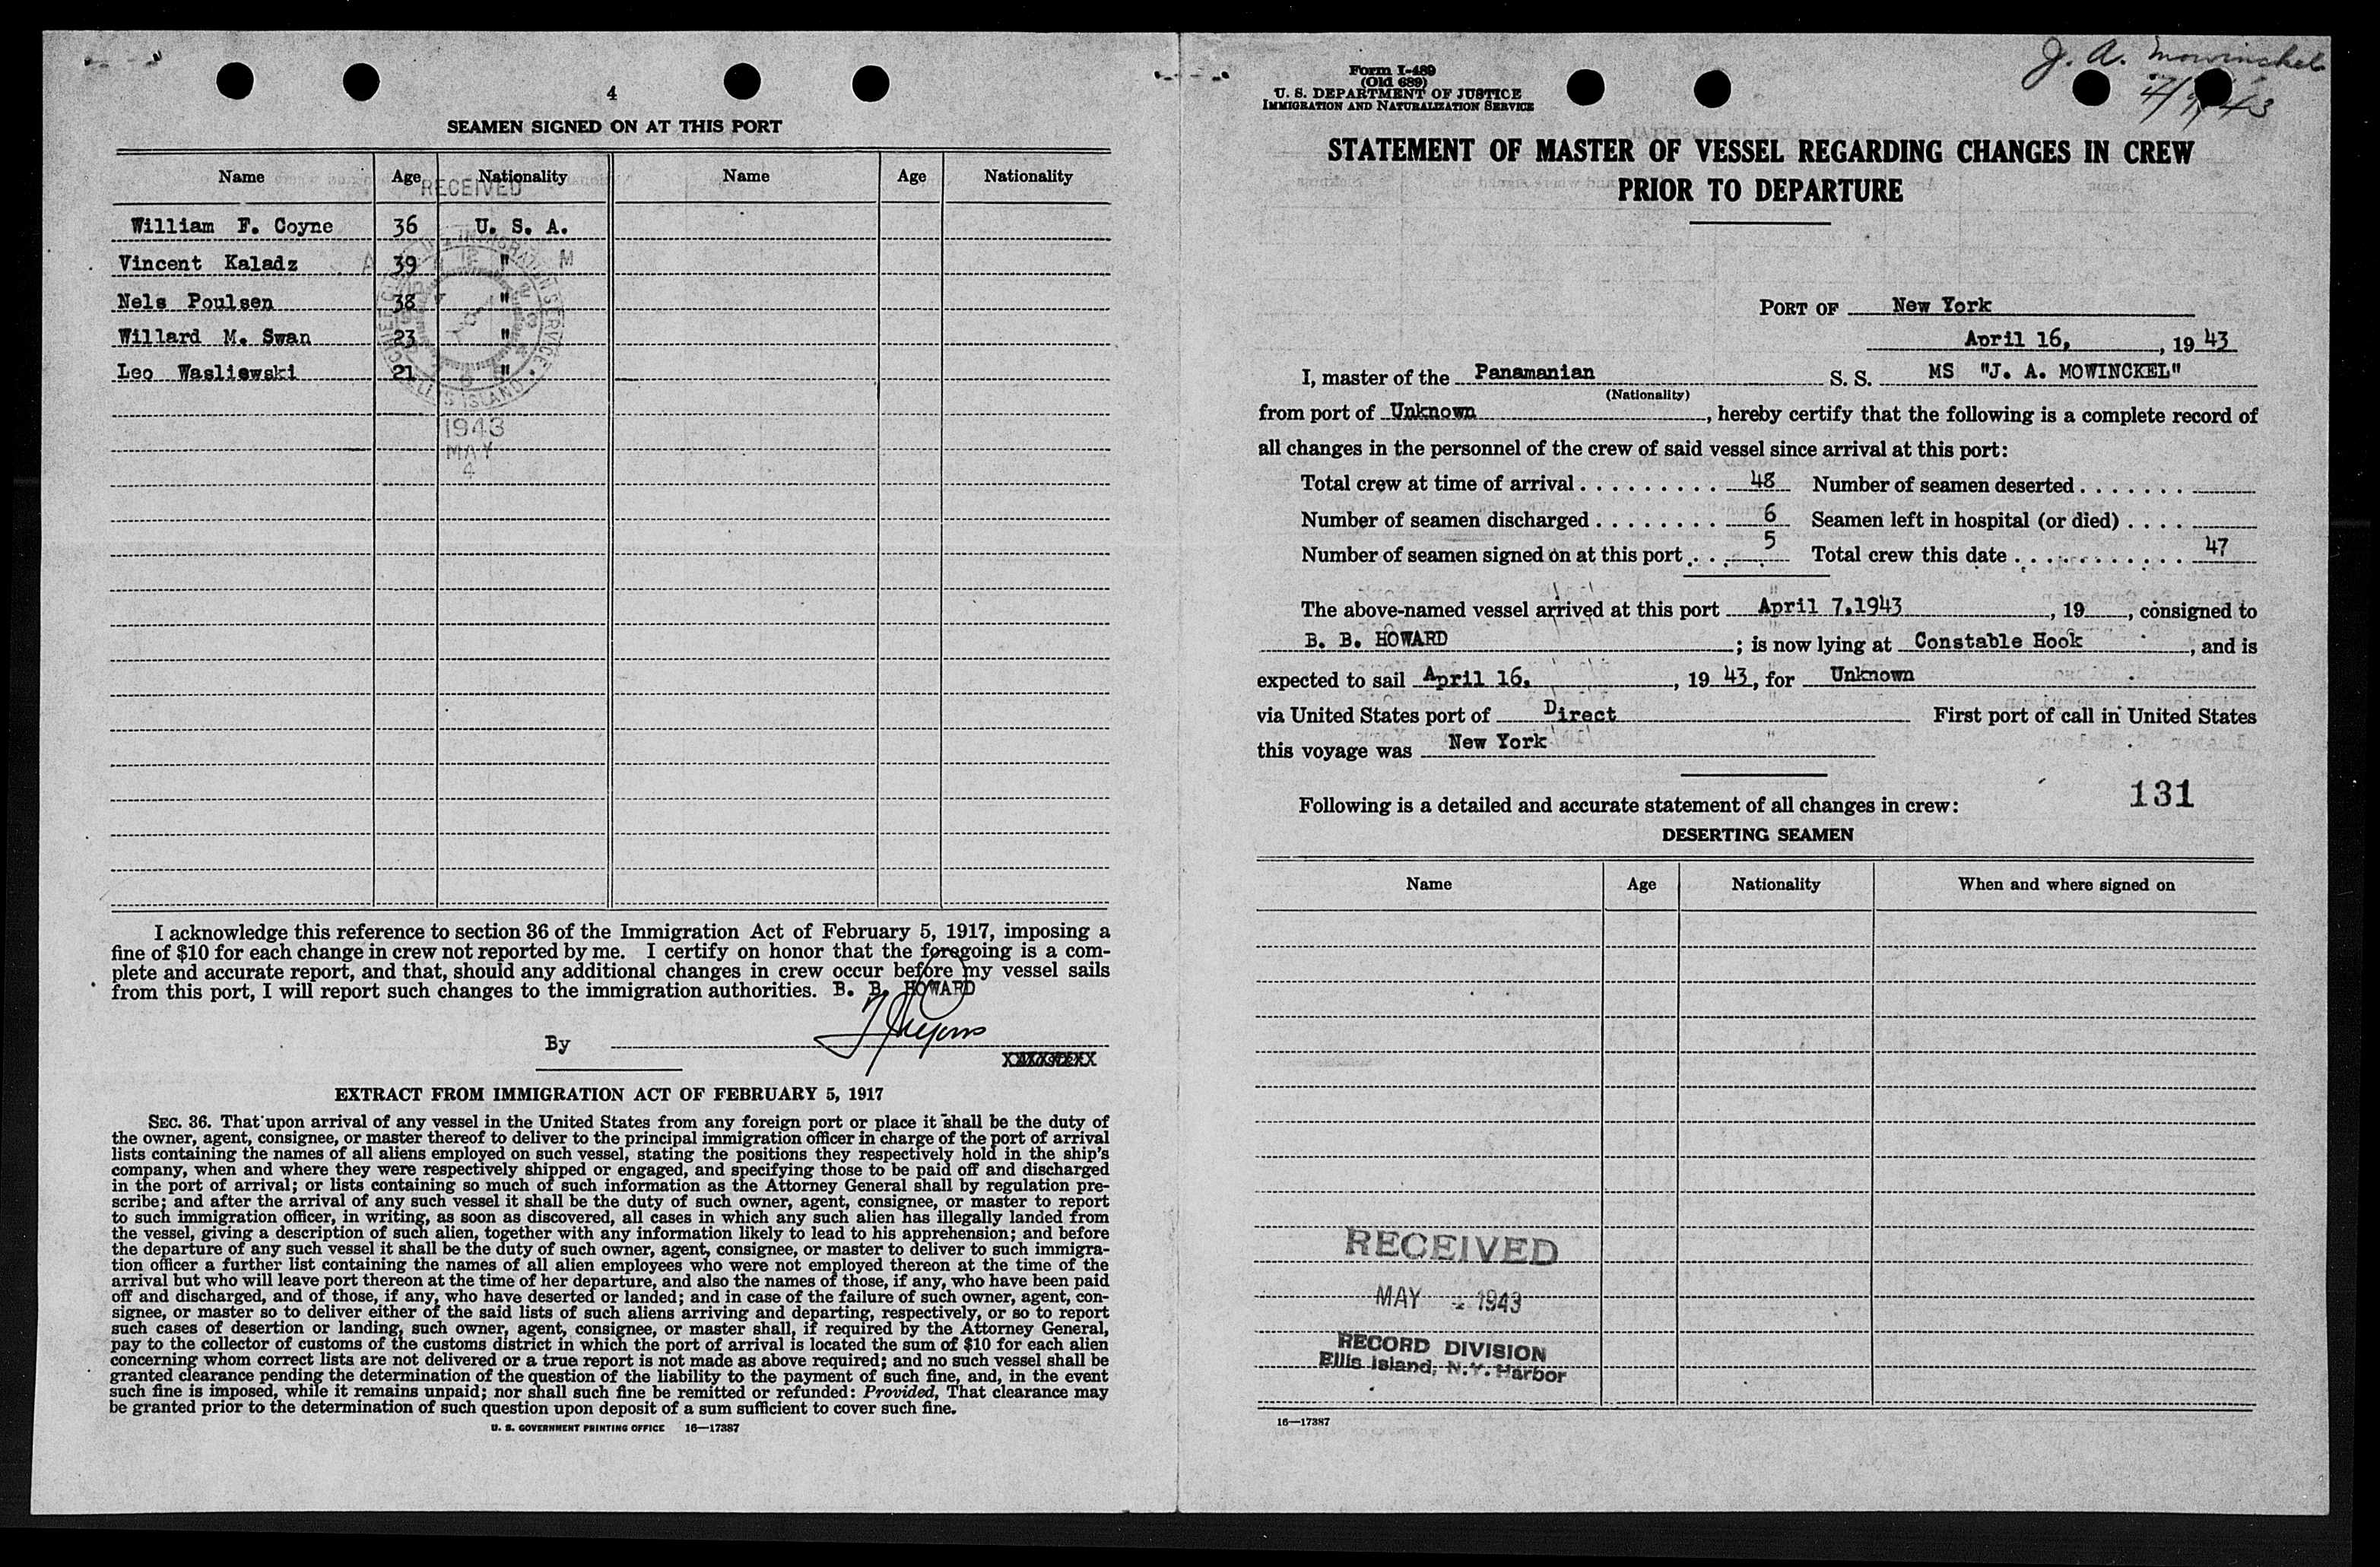 4
SEAMEN SIGNED ON AT THIS PORT
Name Age Nationality Name Age Nationality
RECEIVED
William F. Coyne 36 U. S. A.
Vincent Kaladz 39 "
Nels Poulsen 38 "
Willard M. Swan 23 "
Leo Wasliewski 21 "
1943
MAY
4
I acknowledge this reference to section 36 of the Immigration Act of February 5, 1917, imposing a
fine of $10 for each change in crew not reported by me. I certify on honor that the foregoing is a com-
plete and accurate report, and that, should any additional changes in crew occur before my vessel sails
from this port, I will report such changes to the immigration authorities. B. B. HOWARD
By
EXTRACT FROM IMMIGRATION ACT OF FEBRUARY 5, 1917
SEC. 36. That upon arrival of any vessel in the United States from any foreign port or place it shall be the duty of
the owner, agent, consignee, or master thereof to deliver to the principal immigration officer in charge of the port of arrival
lists containing the names of all aliens employed on such vessel, stating the positions they respectively hold in the ship's
company, when and where they were respectively shipped or engaged, and specifying those to be paid off and discharged
in the port of arrival; or lists containing so much of such information as the Attorney General shall by regulation pre-
scribe; and after the arrival of any such vessel it shall be the duty of such owner, agent, consignee, or master to report
to such immigration officer, in writing, as soon as discovered, all cases in which any such alien has illegally landed from
the vessel, giving a description of such alien, together with any information likely to lead to his apprehension; and before
the departure of any such vessel it shall be the duty of such owner, agent, consignee, or master to deliver to such immigra-
tion officer a further list containing the names of all alien employees who were not employed thereon at the time of the
arrival but who will leave port thereon at the time of her departure, and also the names of those, if any, who have been paid
off and discharged, and of those, if any, who have deserted or landed; and in case of the failure of such owner, agent, con-
signee, or master so to deliver either of the said lists of such aliens arriving and departing, respectively, or so to report
such cases of desertion or landing, such owner, agent, consignee, or master shall, if required by the Attorney General,
pay to the collector of customs of the customs district in which the port of arrival is located the sum of $10 for each alien
concerning whom correct lists are not delivered or a true report is not made as above required; and no such vessel shall be
granted clearance pending the determination of the question of the liability to the payment of such fine, and, in the event
such fine is imposed, while it remains unpaid; nor shall such fine be remitted or refunded: Provided, That clearance may
be granted prior to the determination of such question upon deposit of a sum sufficient to cover such fine.
U. S. GOVERNMENT PRINTING OFFICE 16—17387
J. A. Mowinckel
Form I-489
(Old 689)
U. S. DEPARTMENT OF JUSTICE
IMMIGRATION AND NATURALIZATION SERVICE
STATEMENT OF MASTER OF VESSEL REGARDING CHANGES IN CREW
PRIOR TO DEPARTURE
PORT OF New York
April 16, , 19 43
I, master of the Panamanian S. S. MS "J. A. MOWINCKEL"
(Nationality)
from port of Unknown , hereby certify that the following is a complete record of
all changes in the personnel of the crew of said vessel since arrival at this port:
Total crew at time of arrival . . . . . . . . . 48 Number of seamen deserted . . . . . . .
Number of seamen discharged . . . . . . . . 6 Seamen left in hospital (or died) . . . .
Number of seamen signed on at this port . . . 5 Total crew this date . . . . . . . . . . . 47
The above-named vessel arrived at this port April 7,1943 , 19 , consigned to
B. B. HOWARD ; is now lying at Constable Hook , and is
expected to sail April 16, , 19 43, for Unknown
via United States port of Direct First port of call in United States
this voyage was New York
Following is a detailed and accurate statement of all changes in crew: 131
DESERTING SEAMEN
Name Age Nationality When and where signed on
RECEIVED
MAY 4 1943
RECORD DIVISION
Ellis Island, N.Y. Harbor
16—17387